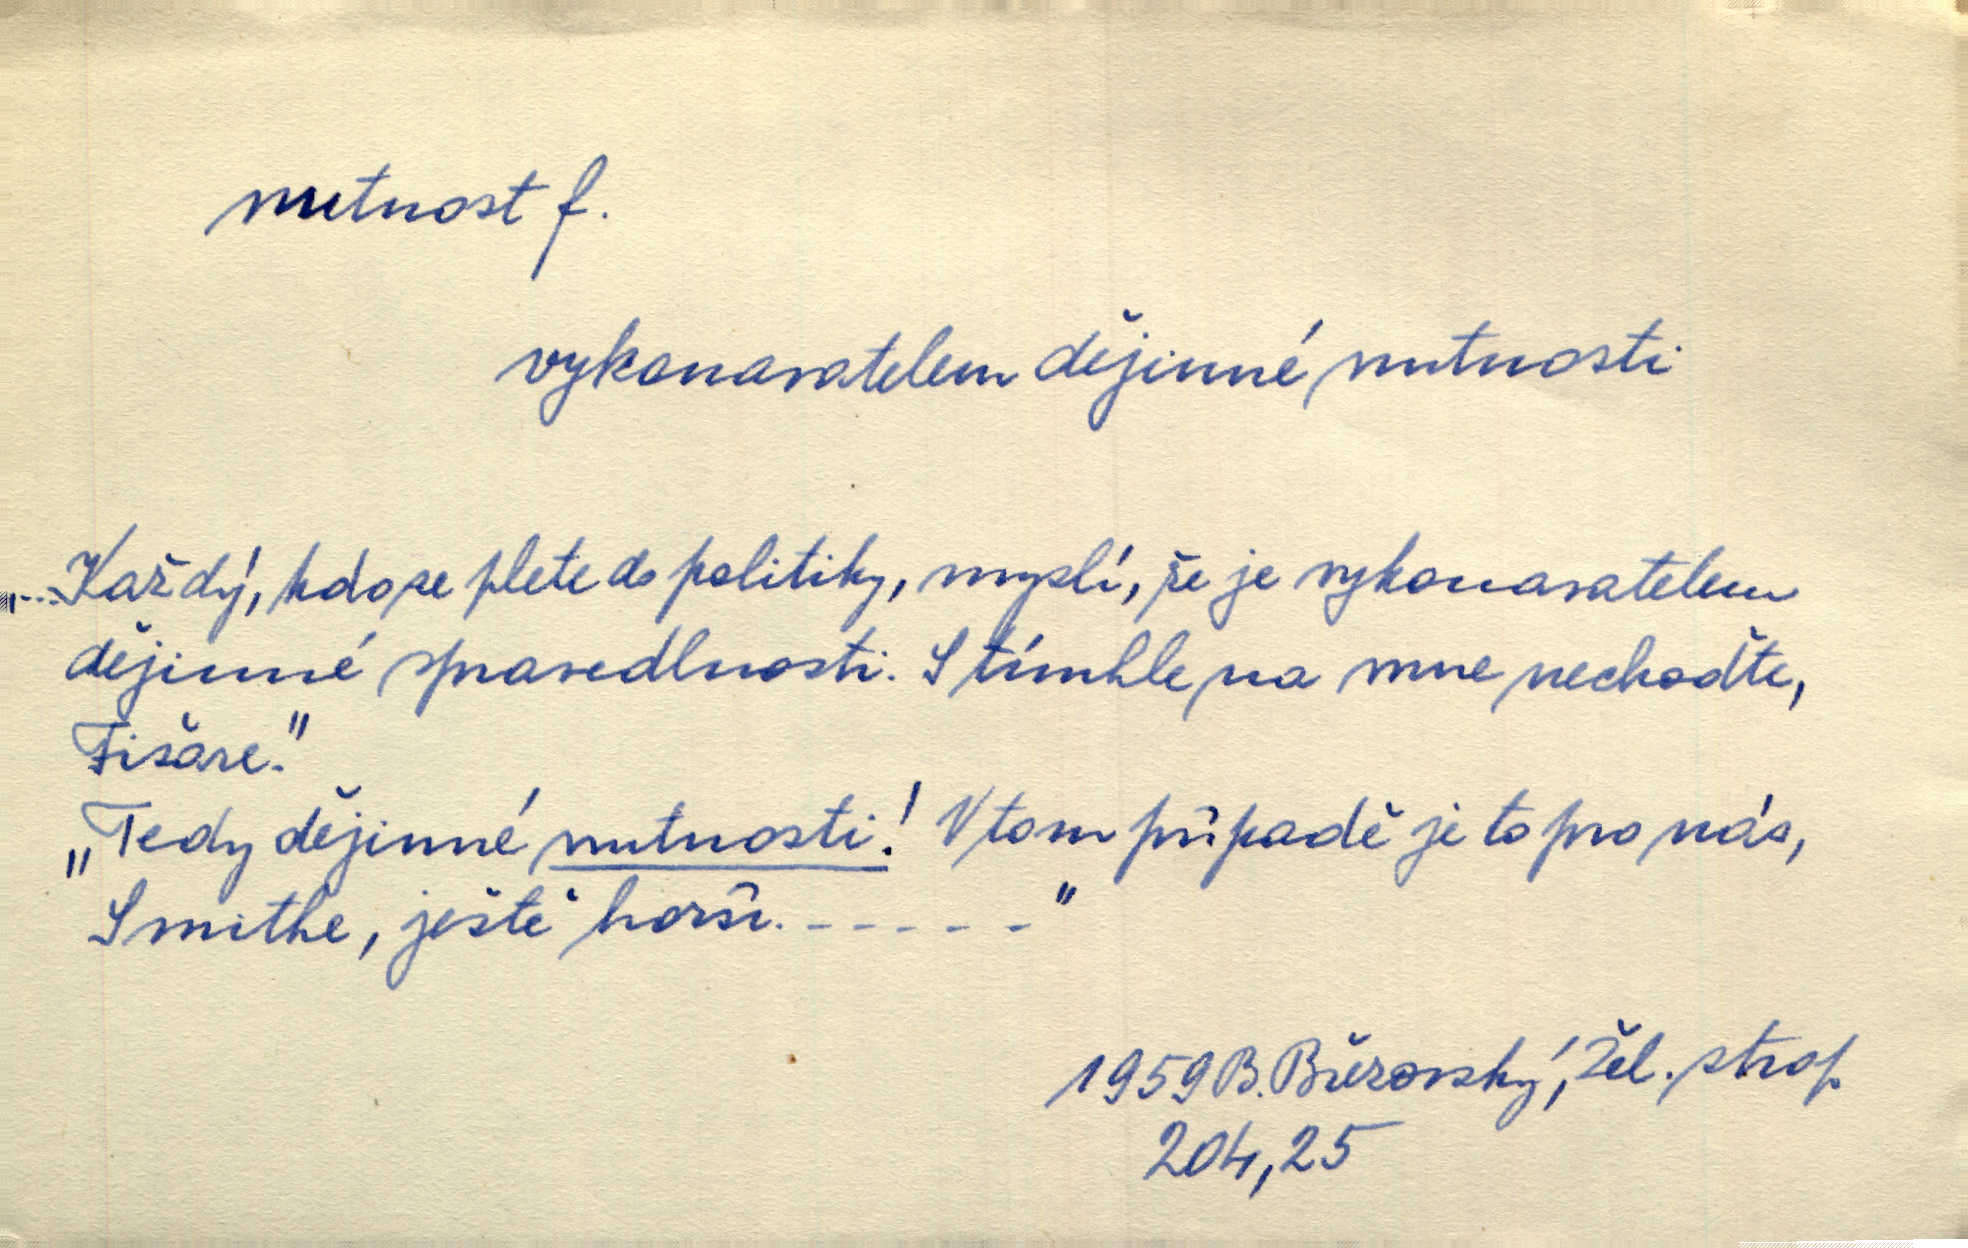 nutnost f.
vykonavatelem dějinné nutnosti
„...Každý, kdo se plete do politiky, myslí, že je vykonavatelem
dějinné spravedlnosti. S tímhle na mne nechoďte,
Fišare."
„Tedy dějinné nutnosti! V tom případě je to pro nás,
Smithe, ještě horší. - - - - - "
1959 B. Březovský, Žel. strop
204,25